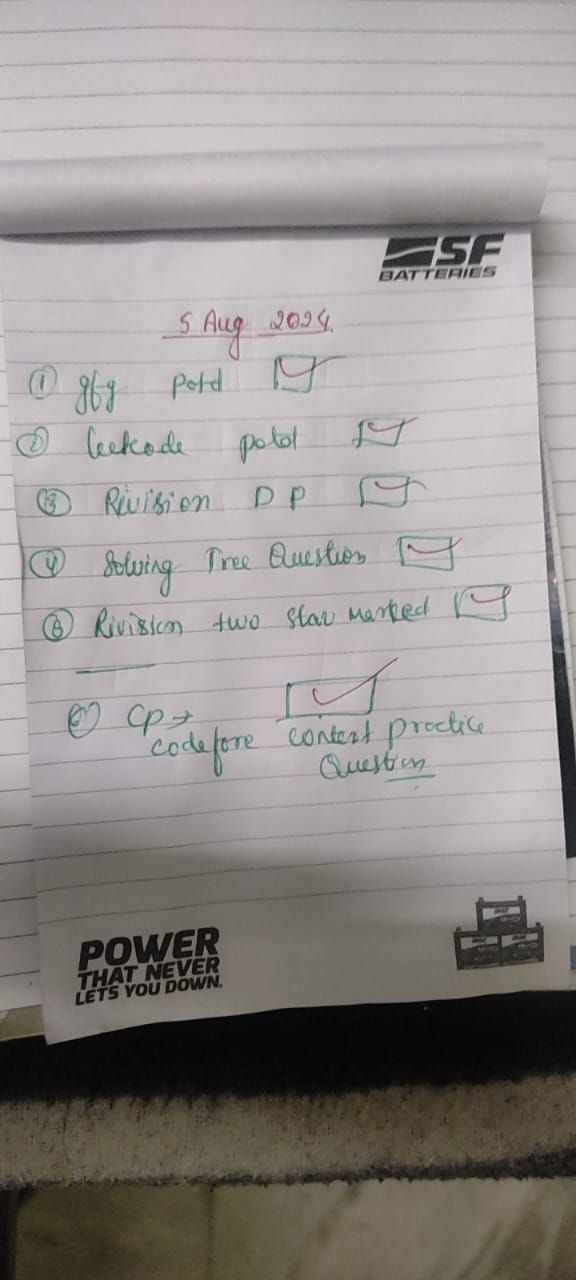 SF
BATTERIES
5 Aug 2024
① gfg potd
② leetcode potd
③ Rivision DP
④ Solving Tree Question
⑤ Rivision two star marked
CP →
codefore contest practice
Question
POWER
THAT NEVER
LETS YOU DOWN.